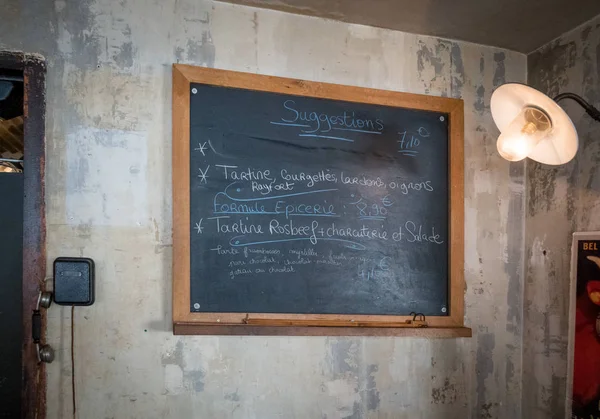 Suggestions
7,10
* Tartine, Courgettes, lardons, oignons
Rayfort
Formule Epicerie : 8,90€
* Tartine Rosbeef + charcuterie et Salade
Tarte framboises, myrtilles
poire chocolat, chocolat
gateau au chocolat
BEL